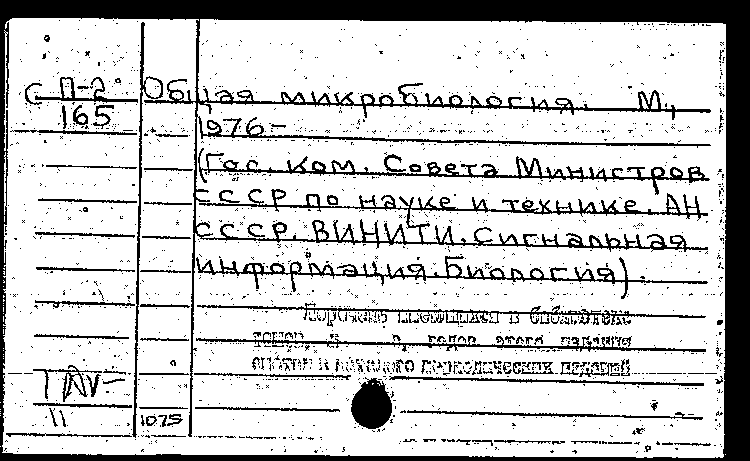 С П-2
165
Общая микробиология. М.,
1976-
(Гос. ком. Совета Министров
СССР по науке и технике. АН
СССР. ВИНИТИ. Сигнальная
информация. Биология).
Перечень имеющихся в библиотеке
томов, в годов этого издания
смотри в каталоге периодических изданий
11
1075